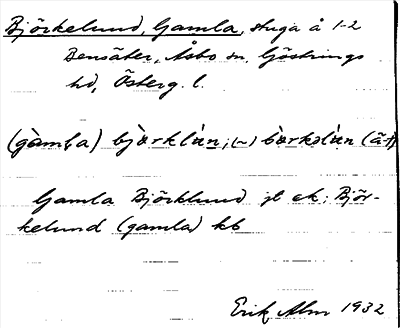 Björkelund, Gamla, stuga å 1-2
Bensäter, Åsbo sn, Göstrings
hd, Österg. l.
(gàmla) bjàrklùn; (~) bàrkəlùn (ä-f)
Gamla Björklund jb ek; Björ-
kelund (gamla) kb
Erik Alm 1932